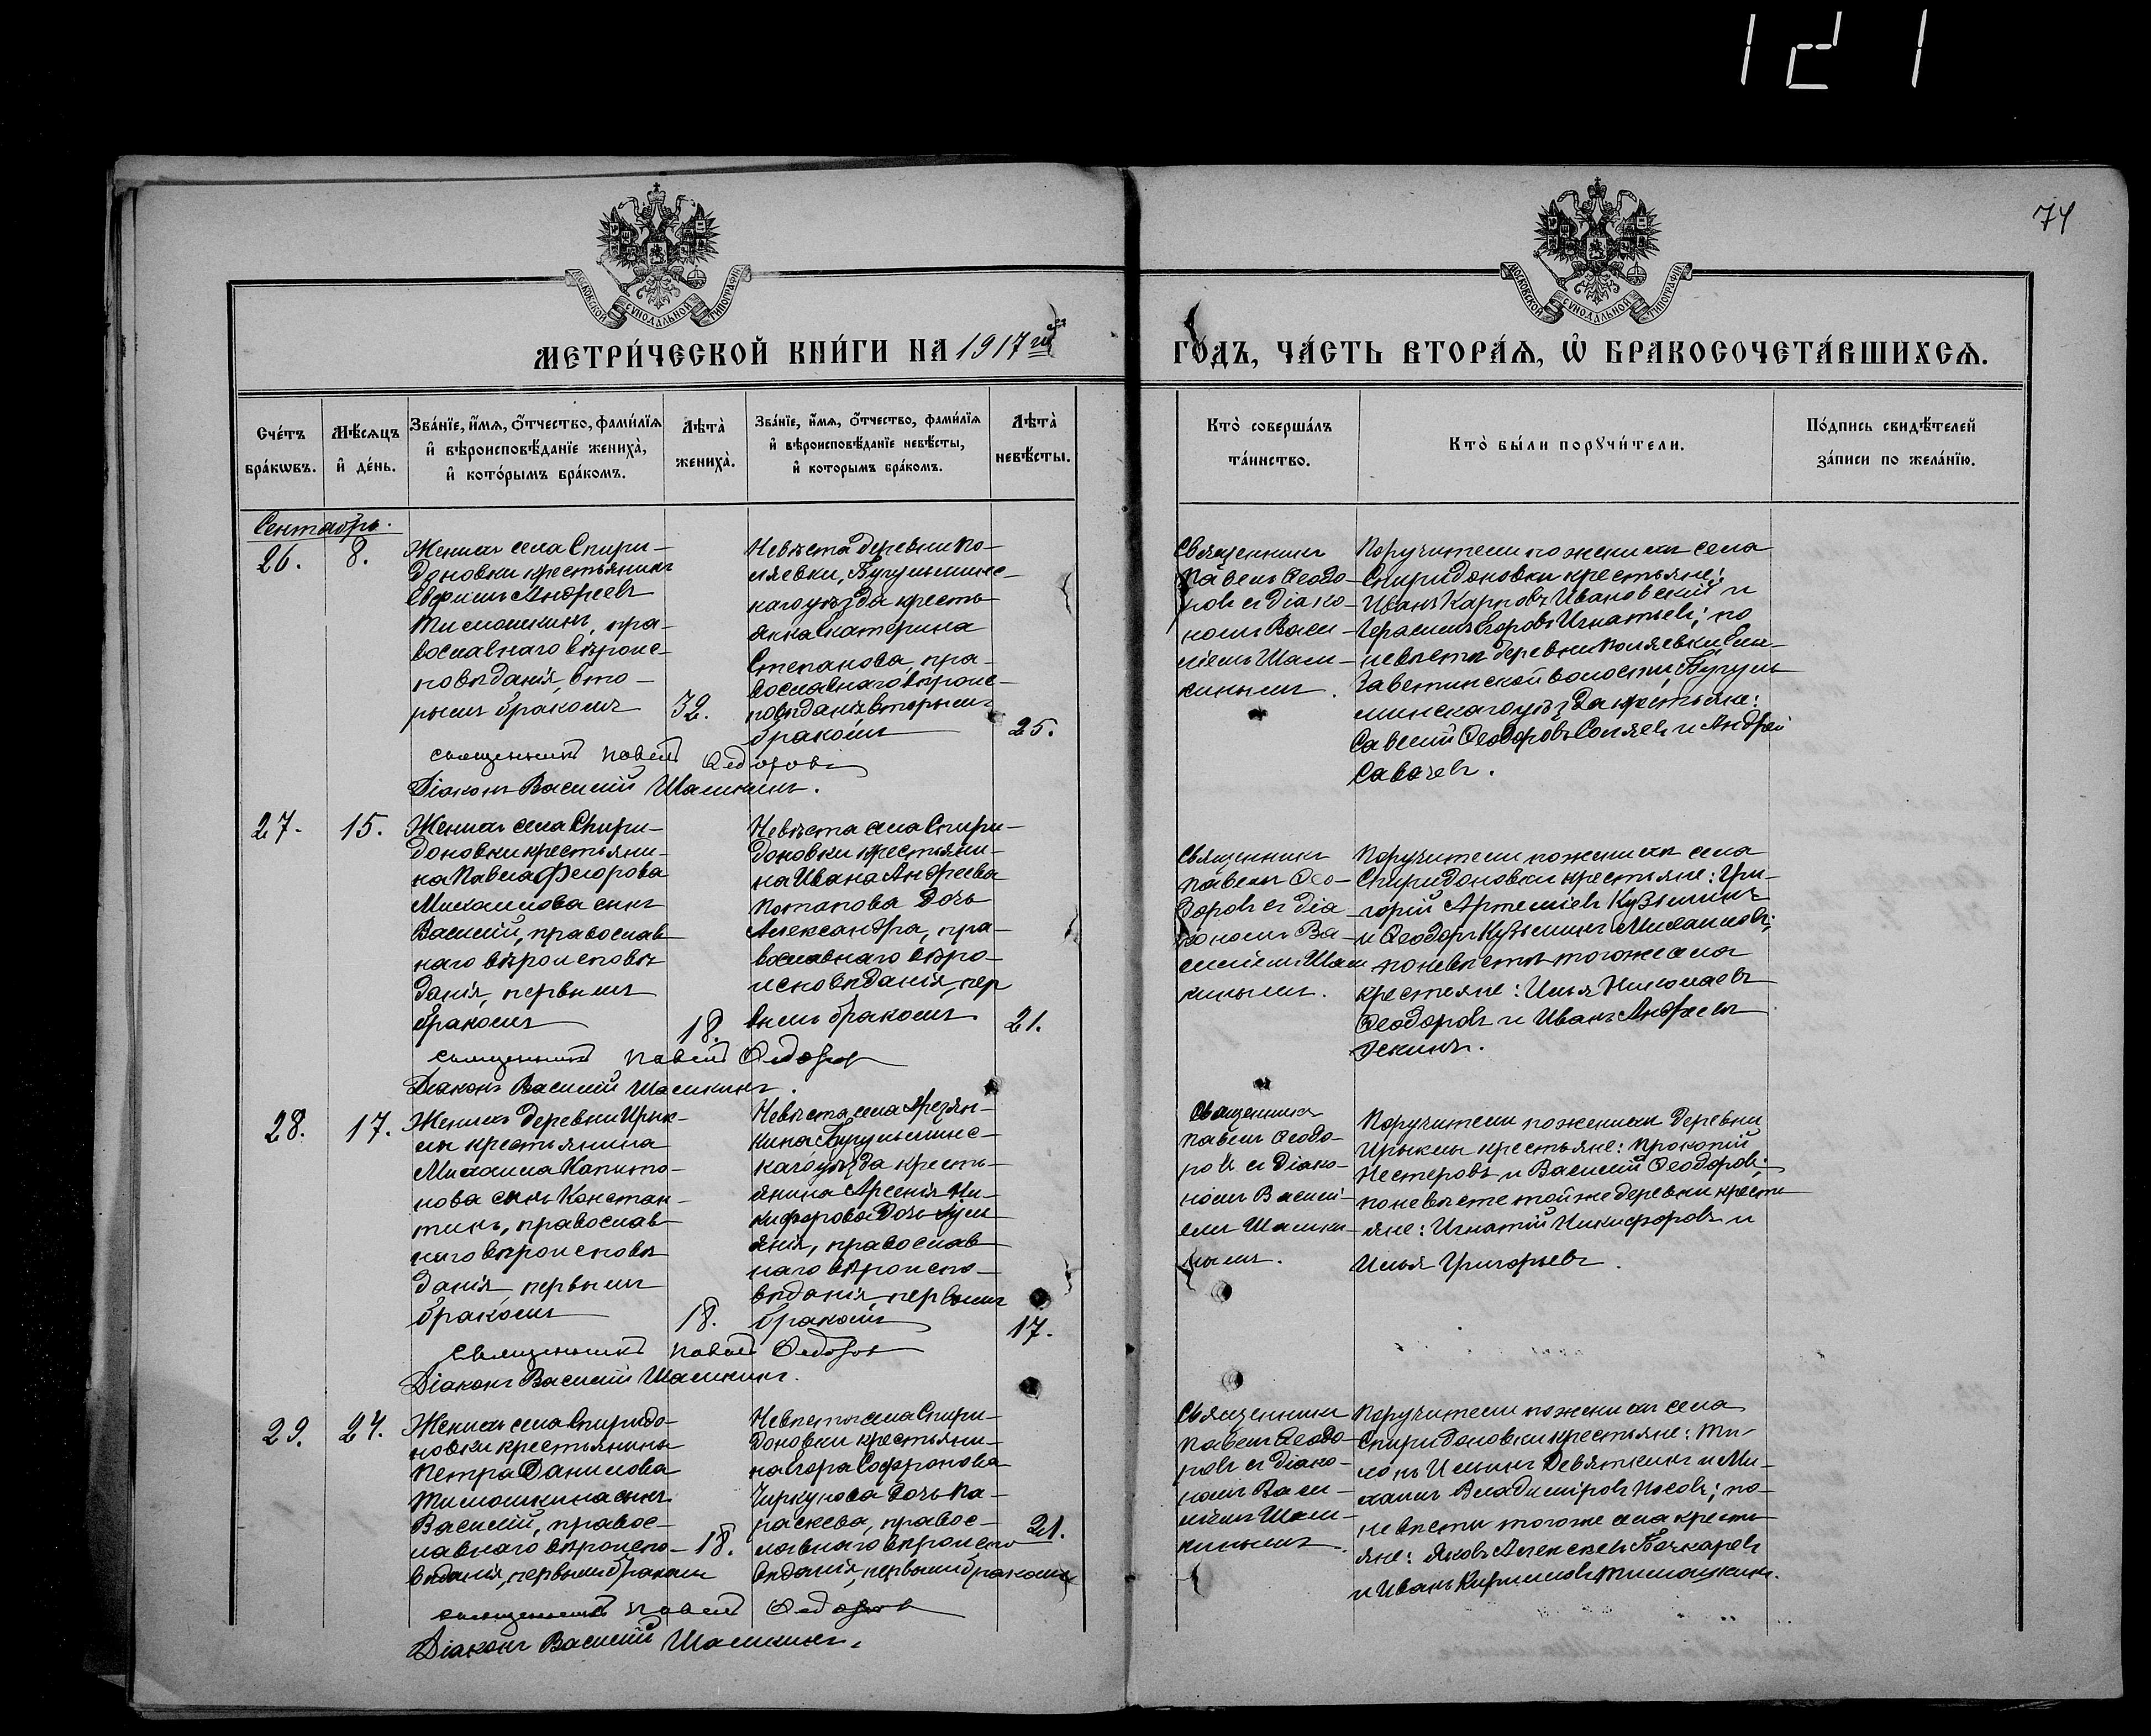 121
74
МОСКОВСКОЙ СѴНОДАЛЬНОЙ ТИПОГРАФІИ
МОСКОВСКОЙ СѴНОДАЛЬНОЙ ТИПОГРАФІИ
МЕТРИ́ЧЕСКОЙ КНИ́ГИ НА 1917 го́дъ, ЧА́СТЬ ВТОРА́Ѧ, Ѽ БРАКОСОЧЕТА́ВШИХСѦ.
Сче́тъ бра́кѡвъ.
Мѣ́сѧцъ и҆ де́нь.
Зва́нїе, и҆́мѧ, ѻ҆́тчество, фами́лїѧ
и҆ вѣроисповѣ́данїе жениха̀,
и҆ кото́рымъ бра́комъ.
Лѣта̀ жениха̀.
Зва́нїе, и҆́мѧ, ѻ҆́тчество, фами́лїѧ
и҆ вѣроисповѣ́данїе невѣ́сты,
и҆ которымъ бра́комъ.
Лѣта̀ невѣ́сты.
Кто̀ соверша́лъ
та́инство.
Кто̀ бы́ли порꙋчи́тели.
По́дпись свидѣ́телей
за́писи по жела́нїю.
Сентябрь.
26.
8.
Женихъ села Спири-
доновки крестьянинъ
Евфимъ Андреевъ
Тимошкинъ, пра-
вославнаго вѣроис-
повѣданія, вто-
рымъ бракомъ
32.
Невѣста деревни По-
ляевки, Бугульминс-
каго уѣзда кресть-
янка Екатерина
Степанова, пра-
вославнаго вѣроис-
повѣданія вторымъ
бракомъ
25.
Священникъ
Павелъ Ѳеодо-
ровъ съ діако-
номъ Васи-
ліемъ Шаш-
кинымъ.
Поручители по женихѣ села
Спиридоновки крестьяне:
Иванъ Карповъ Ивановскій и
Герасимъ Егоровъ Игнатьевъ; по
невѣстѣ деревни Поляевки Ели-
заветинской волости, Бугуль
минскаго уѣзда крестьяне:
Савелій Ѳеодоровъ Соляевъ и Андрей
Савачевъ.
Священникъ Павелъ Ѳедоровъ
Діаконъ Василій Шашкинъ.
27.
15.
Женихъ села Спири-
доновки крестьяни-
на Павла Ѳеорова
Михайлова сынъ
Василій, православ
наго вѣроисповѣ
данія, первымъ
бракомъ
18.
Невѣста села Спири-
доновки крестьяни-
на Ивана Андреева
Потапова дочь
Александра, пра-
вославнаго вѣро-
исповѣданія, пер
вымъ бракомъ
21.
Священникъ
Павелъ Ѳео-
доровъ съ діа
кономъ Ва-
силіемъ Шаш
кинымъ.
Поручители по женихѣ села
Спиридоновки крестьяне: Гри-
горій Артемьевъ Кузьминъ
и Ѳеодоръ Кузьминъ Михайловъ;
по невѣстѣ того же села
крестьяне: Илья Николаевъ
Ѳеодоровъ и Иванъ Андреевъ
Священникъ Павелъ Ѳедоровъ
Діаконъ Василій Шашкинъ.
28.
17.
Женихъ деревни Ирык-
лы крестьянина
Михаила Капито-
нова сынъ Констан-
тинъ, православ
наго вѣроисповѣ
данія, первымъ
бракомъ
18.
Невѣста села
Бугульминс-
каго уѣзда кресть-
янина Арсенія Ни-
кифорова дочь
православ
наго вѣроиспо-
вѣданія, первымъ
бракомъ
17.
Священникъ
Павелъ Ѳеодо-
ровъ съ діако-
номъ Васил-
емъ Шашки-
нымъ.
Поручители по женихѣ деревни
Ирыклы крестьяне: Прокопій
Нестеровъ и Василій Ѳеодоровъ;
по невѣсте той же деревни кресть
яне: Игнатій Никифоровъ и
Илья Григорьевъ.
Священникъ Павелъ Ѳедоровъ
Діаконъ Василій Шашкинъ.
29.
24.
Женихъ села Спиридо-
новки крестьянина
Петра Данилова
Тимошкина сынъ
Василій, правос-
лавнаго вѣроиспо-
вѣданія, первымъ бракомъ
18.
Невѣста села Спири-
доновки крестьяни-
на Егора Софронова
Чиркунова дочь Па-
раскева, правос-
лавнаго вѣроиспо
вѣданія, первымъ бракомъ
21.
Священникъ
Павелъ Ѳеодо-
ровъ съ діако-
номъ Васи-
ліемъ Шаш-
кинымъ.
Поручители по женихѣ села
Спиридоновки крестьяне: Ти-
хонъ Ильинъ Девяткинъ и Ми-
хаилъ Владиміровъ Носовъ; по-
невѣсти того же села кресть
яне: Яковъ Алексѣевъ Бочкаревъ
и Иванъ Кирилловъ Тимошкинъ.
Священникъ Павелъ Ѳедоровъ
Діаконъ Василій Шашкинъ.